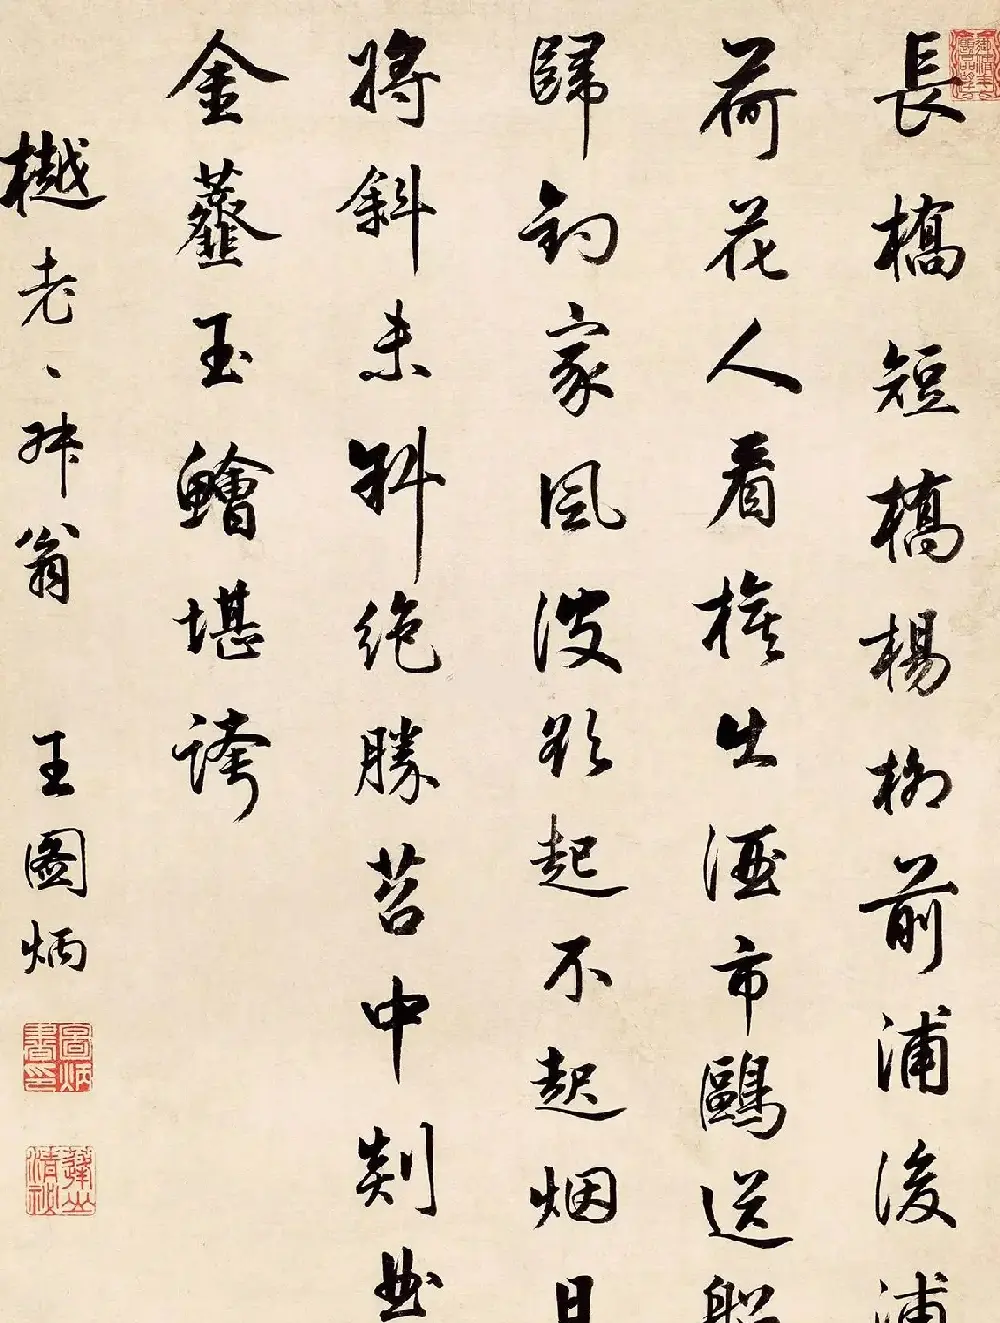 長橋短橋楊柳前浦後浦
荷花人看旗出酒市鷗送船
歸釣家風波欲起不起烟日
將斜未斜絶勝苕中剡曲
金虀玉鱠堪誇
樾老、叔翁
王圖炳